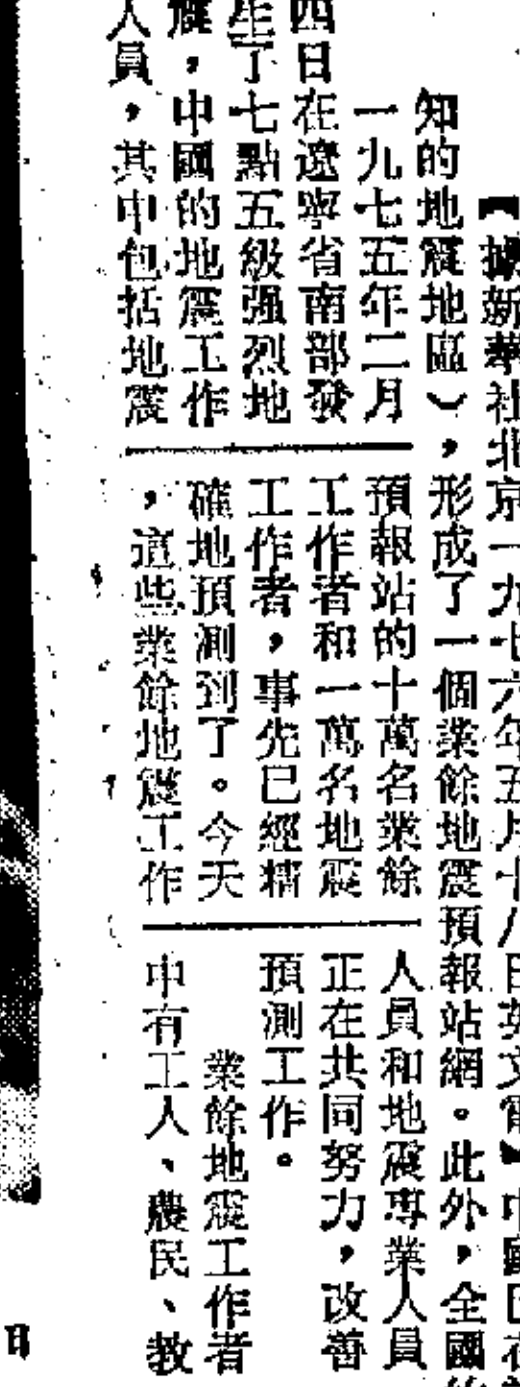 【據新華社北京一九七六年五月十八日英文電】中國已在
知的地震地區），形成了一個業餘地震預報站網。此外，全國
一九七五年二月
四日在遼寧省南部發
生了七點五級强烈地
震，中國的地震工作
人員，其中包括地震
預報站的十萬名業餘
工作者和一萬名地震
工作者，事先已經精
確地預測到了。今天
，這些業餘地震工作
人員和地震專業人員
正在共同努力，改善
預測工作。
業餘地震工作者
中有工人、農民、教